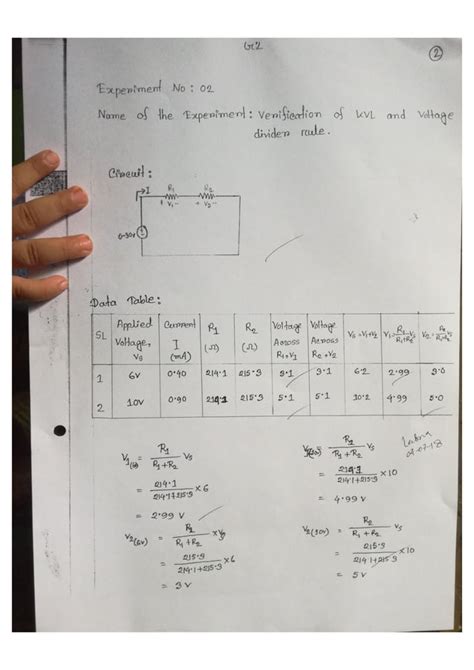 Gr2
2
Experiment No : 02
Name of the Experiment : Verification of KVL and Voltage
divider rule.
Circuit :
I R1 R2
+ V1 - + V2 -
0-30v
Data Table :
SL Applied Voltage, Vs Current I (mA) R1 (Ω) R2 (Ω) Voltage Across R1, V1 Voltage Across R2, V2 Vs = V1+V2 V1 = R1/R1+R2 Vs V2 = R2/R1+R2 Vs
1 6v 0.40 214.1 215.3 3.1 3.1 6.2 2.99 3.0
2 10v 0.90 214.1 215.3 5.1 5.1 10.2 4.99 5.0
V1(6v) = R1/R1+R2 Vs
= 214.1/214.1+215.3 ×6
= 2.99 v
V2(6v) = R2/R1+R2 × Vs
= 215.3/214.1+215.3 ×6
= 3v
V1(10v) = R1/R1+R2 Vs
= 214.1/214.1+215.3 ×10
= 4.99 v
V2(10v) = R2/R1+R2 Vs
= 215.3/214.1+215.3 ×10
= 5v